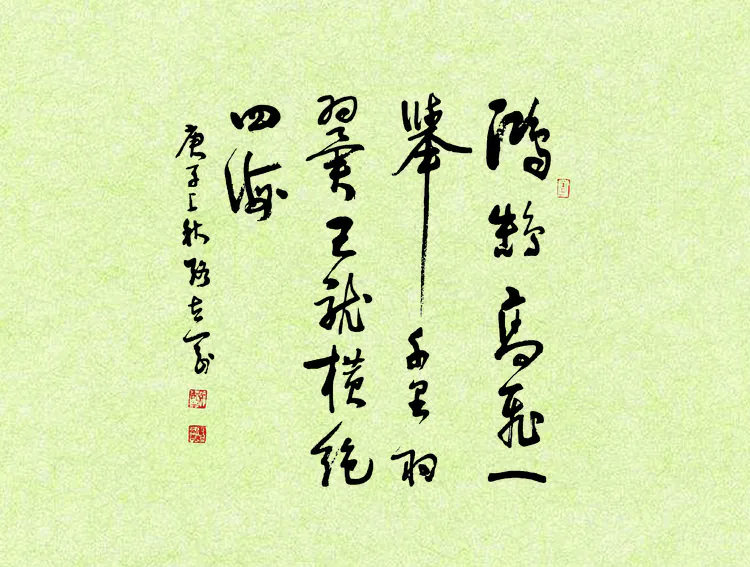 鴻鵠高飛一
舉千里羽
翼已就橫絕
四海
庚子之秋